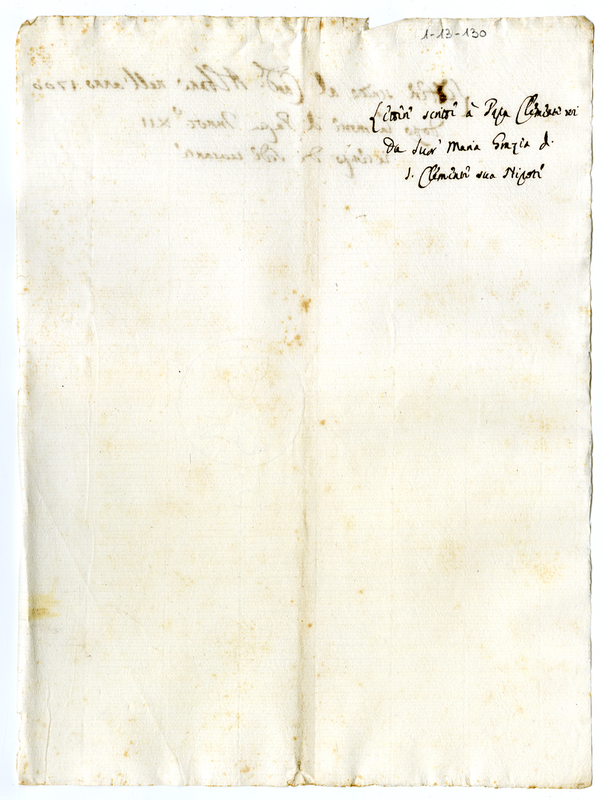 1-13-130
Lettere scritte à Papa Clemente XI
da Suor Maria Grazia di
S. Clemente sua Nipote
al Card. Albani nell'anno 1700
di Papa Innoc. XII